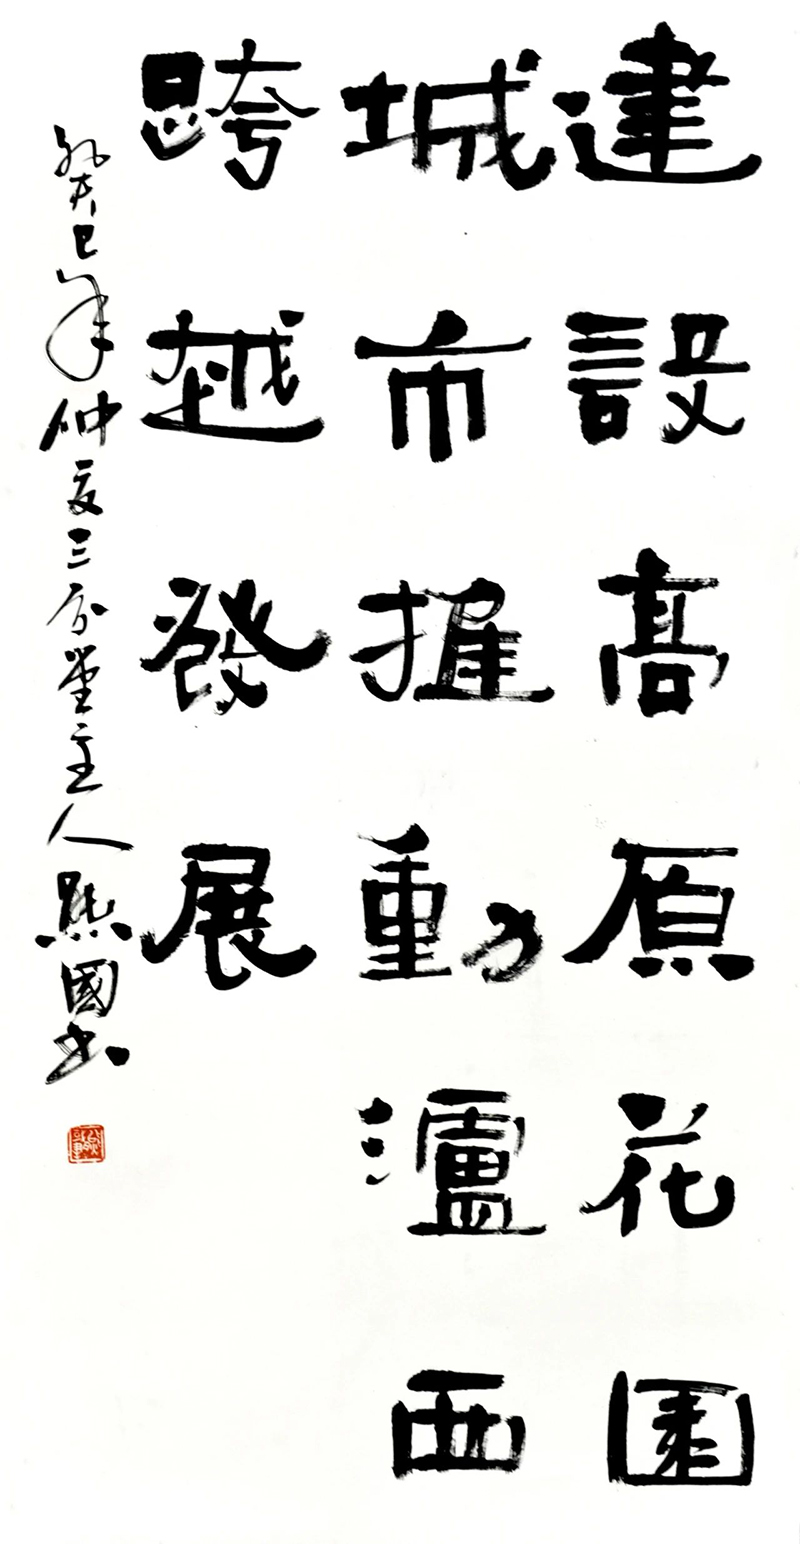 建設高原花園
城市推動瀘西
跨越發展
癸巳年仲夏三分堂主人點國書